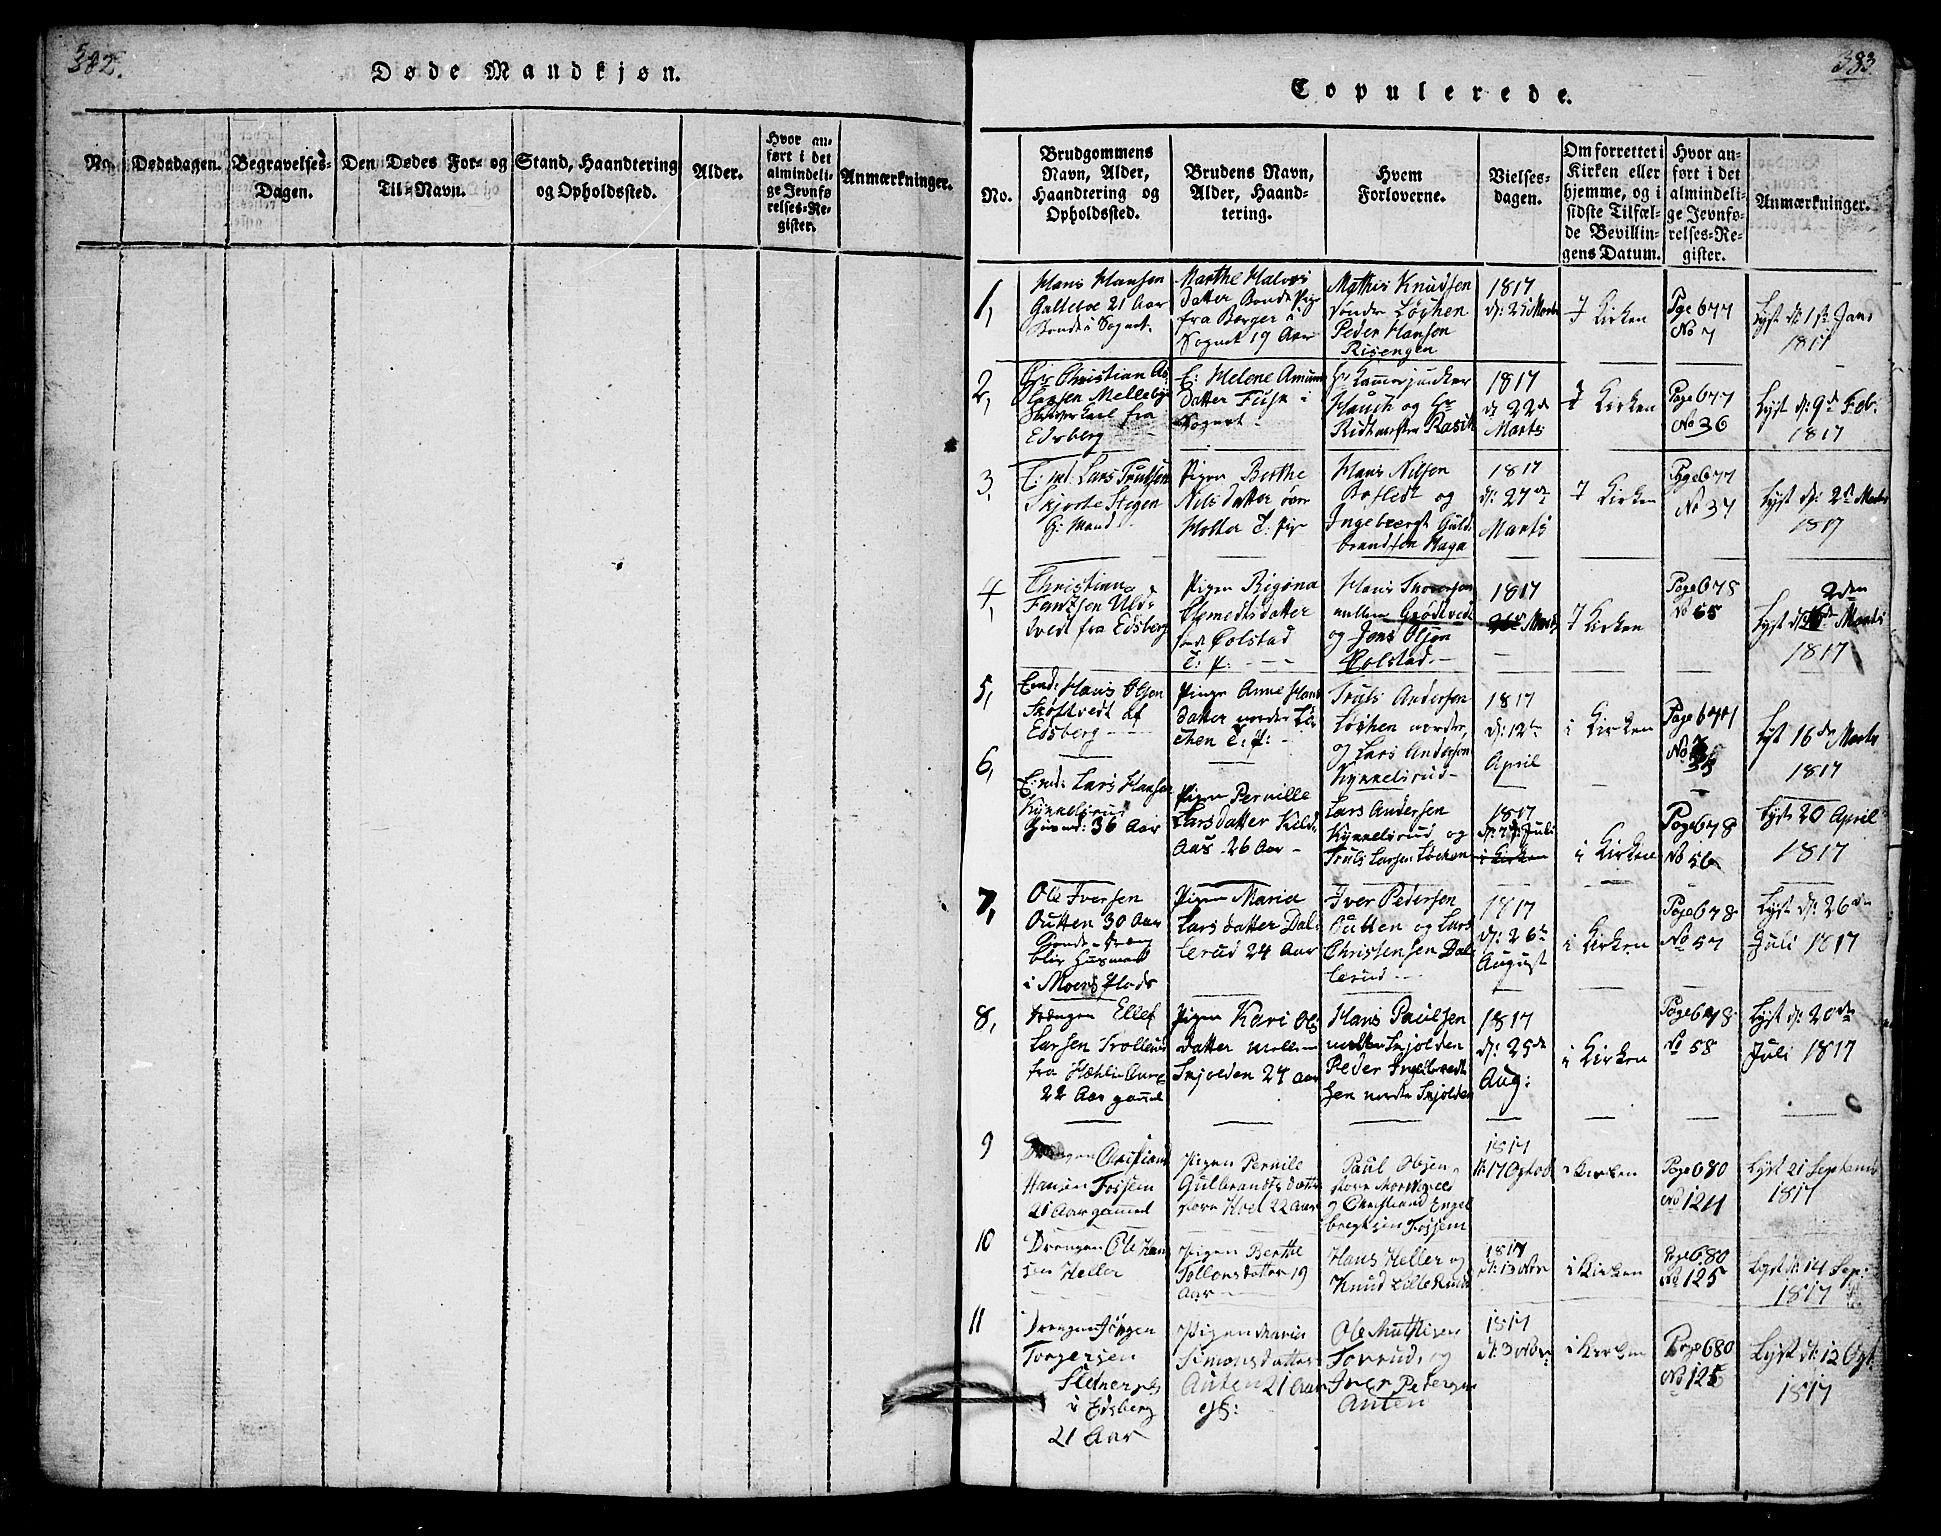 382.
Døde Mandkjøn.
No. Dødsdagen. Begravelses-Dagen. Den Dødes For- og Til-Navn. Stand, Haandtering og Opholdssted. Alder. Hvor anført i det almindelige Jevnførelses-Register. Anmærkninger.
383
Copulerede.
No. Brudgommens Navn, Alder, Haandtering og Opholdssted. Brudens Navn, Alder, Haandtering. Hvem Forloverne. Vielsesdagen. Om forrettet i Kirken eller hjemme, og i sidste Tilfælde Bevillingens Datum. Hvor anført i det almindelige Jevnførelses-Register. Anmærkninger.
1, Hans Hansen
21 Aar
Sognet.
Marthe Halvors
datter Bonde Pige
fra Berger i
Sognet 19 Aar
Mathis Knudsen
søndre Løchen
Peder Hansen
Risengen
1817
d: 25 Marts
I Kirken
Pge 677
No 7
Lyst d: 1ste Jans
1817
2, Hr Christian
Melleby
fra
Edsberg
E: Helene Amund
datter Fusk i
Sognet
Hr Kammerjunker
Hauch og Hr
Ridtmester Rasch
1817
d 22de
Marts
I Kirken
Page 677
No 36
Lyst d: 9de Feb.
1817
3, E: md: Lars Trulsen
Skjorte Stegen
G: Mand
Pigen Berthe
Nils datter over
Molter E: Pige
Hans Nilsen
og
Ingebregt Guld
brandsen Haga
1817
d: 27de
Marts
I Kirken
Page 677
No 37
Lyst d: 2de Marts
1817
4, Christian
Frantsen Uld
tvedt fra Edsberg
Pigen Bigona
Clemedtsdatter
Colstad
E: P:
Hans
mellem Grødtvedt
og Jens Olsen
Colstad
1817
26de Marts
I Kirken
Page 678
No 55
2den
Lyst d: Marts
1817
5, E md: Hans Olsen
Tvedt af
Edsberg
Pigen Anne Hans
datter nordre Lø
chen E: P:
Truls Andersen
Løchen nordre,
og Lars Andersen
Kykkelsrud
1817
d: 12te
April
i Kirken
Page 6771
No
Lyst 16de Marts
1817
6, E: md: Lars Hansen
Kykkelsrud
36 Aar
Pigen Pernille
Larsdatter Kild
Aas 26 Aar
Lars Andersen
Kykkelsrud og
Truls Larsen Løchen
1817
d: 7de Juli
i Kirken
i Kirken
Page 678
No 56
Lyst 20 April
1817
7, Ole Iversen
Outten 30 Aar
Bonde-dreng
blir Husmand
i Moens Plads
Pigen Maria
Lars datter Dal
lerud 24 Aar
Iver Pedersen
Outten og Lars
Christensen Dal
lerud
1817
d: 26te
August
i Kirken
Page 678
No 57
Lyst d: 26de
Juli 1817
8, Drengen Ellef
Larsen Trollerud
fra
22 Aar gammel
Pigen Kari Ols
datter Melle
Skjolden 24 Aar
Hans Paulsen
melle Skjolden
Peder Ingebregt
sen nordre Skjolden
1817
d: 25de
Aug:
i Kirken
Page 678
No 58
Lyst d: 20de
Juli 1817
9 Drengen Christiand
Hansen Fossem
21 Aar gammel
Pigen Pernile
Gulbrandtsdatter
Hoel 22 Aar
Paul Olsen
og Christiand Engel
bregtsen Fossem
1817
d: 17 Octob
i Kirken
Page 680
No 124
Lyst 21 Septemb
1817
10 Drengen Ole Han
sen Heller
Pigen Berthe
Tollensdatter 19
Aar
Hans Heller og
Knud Lillerud
1817
d: 13 Nov
i Kirken
Page 680
No 125
Lyst d: 14 Sep:
1817
11 Drengen Jörgen
Torgersen
Sletner
i Edsberg
21 Aar
Pigen Maria
Simonsdatter
Auten 21 Aar
gl:
Ole Mathisen
Torrud og
Iver Pedersen
Auten
1817
d: 3 Nov
i Kirken
Page 680
No 125
Lyst d: 12 Oct
1817